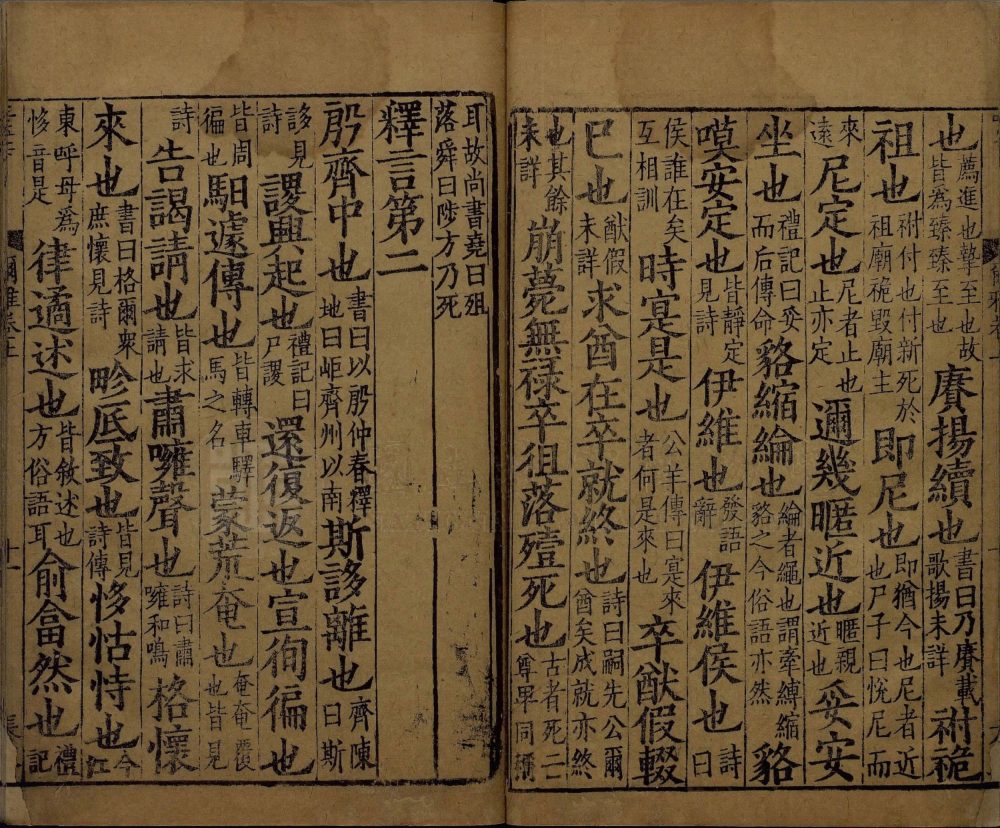 也薦進也摯至也故皆爲臻臻至也賡揚續也書曰乃賡載歌揚未詳祔祪
祖也祔付也付新死於祖廟祪毀廟主即尼也即猶今也尼者近也尸子曰悅尼而
來遠尼定也尼者止也止亦定邇幾暱近也暱親近也妥安
坐也禮記曰妥而后傳命貉縮綸也綸者繩也謂牽縛縮貉之今俗語亦然貉
嘆安定也皆靜定見詩伊維也發語辭伊維侯也詩曰
侯誰在矣互相訓時寔是也公羊傳曰寔來者何是來也卒猷假輟
已也猷假未詳求酋在卒就終也詩曰嗣先公爾酋矣成就亦終
也其餘未詳崩薨無祿卒徂落殪死也古者死亡尊卑同稱
耳故尚書堯曰殂落舜曰陟方乃死
釋言第二
殷齊中也書曰以殷仲春釋地曰岠齊州以南斯誃離也齊陳曰斯
誃見詩謖興起也禮記曰尸謖還復返也宣徇徧也
皆周徧也馹遽傳也皆轉車驛馬之名蒙荒奄也奄奄覆也皆見
詩告謁請也皆求請也肅噰聲也詩曰肅噰和鳴格懷
來也書曰格爾衆庶懷見詩畛厎致也皆見詩傳恀怙恃也今江
東呼母爲恀音是律遹述也皆敘述也方俗語耳俞畣然也禮記